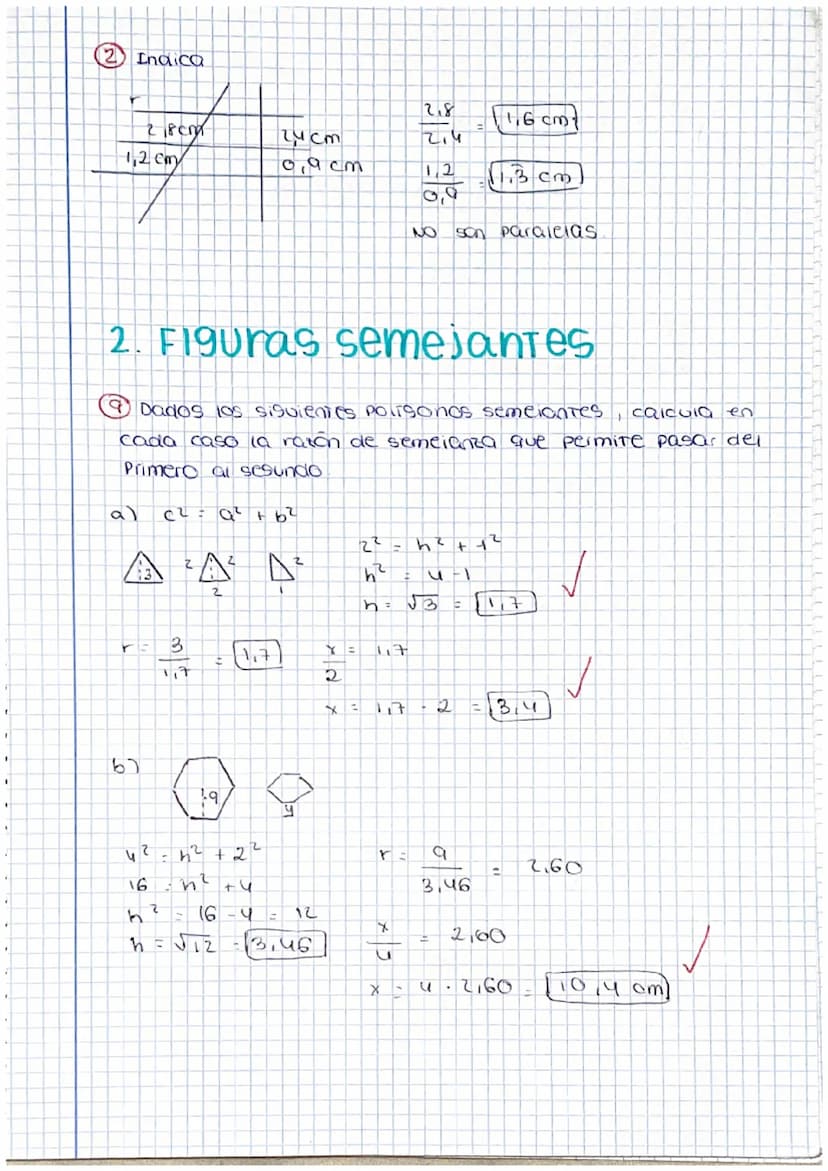 2 Indica
r
2,8cm
2,4 cm
1,2 cm
0,9 cm
2,8 / 2,4 = 1,6 cm
1,2 / 0,9 = 1,3 cm
NO son paralelas
2. Figuras semejantes
9 Dados los siguientes polígonos semejantes, calcula en
cada caso la razón de semejanza que permite pasar del
Primero al segundo
a) c² = a² + b²
3 2 2 2 2 1
2² = h² + 1²
h² = 4 - 1
h = √3 = 1,7
r = 3 / 1,7 = 1,7
x / 2 = 1,7
x = 1,7 · 2 = 3,4
b)
9
4
4² = h² + 2²
16 = h² + 4
h² = 16 - 4 = 12
h = √12 = 3,46
r = 9 / 3,46 = 2,60
x / 4 = 2,60
x = 4 · 2,60 = 10,4 cm